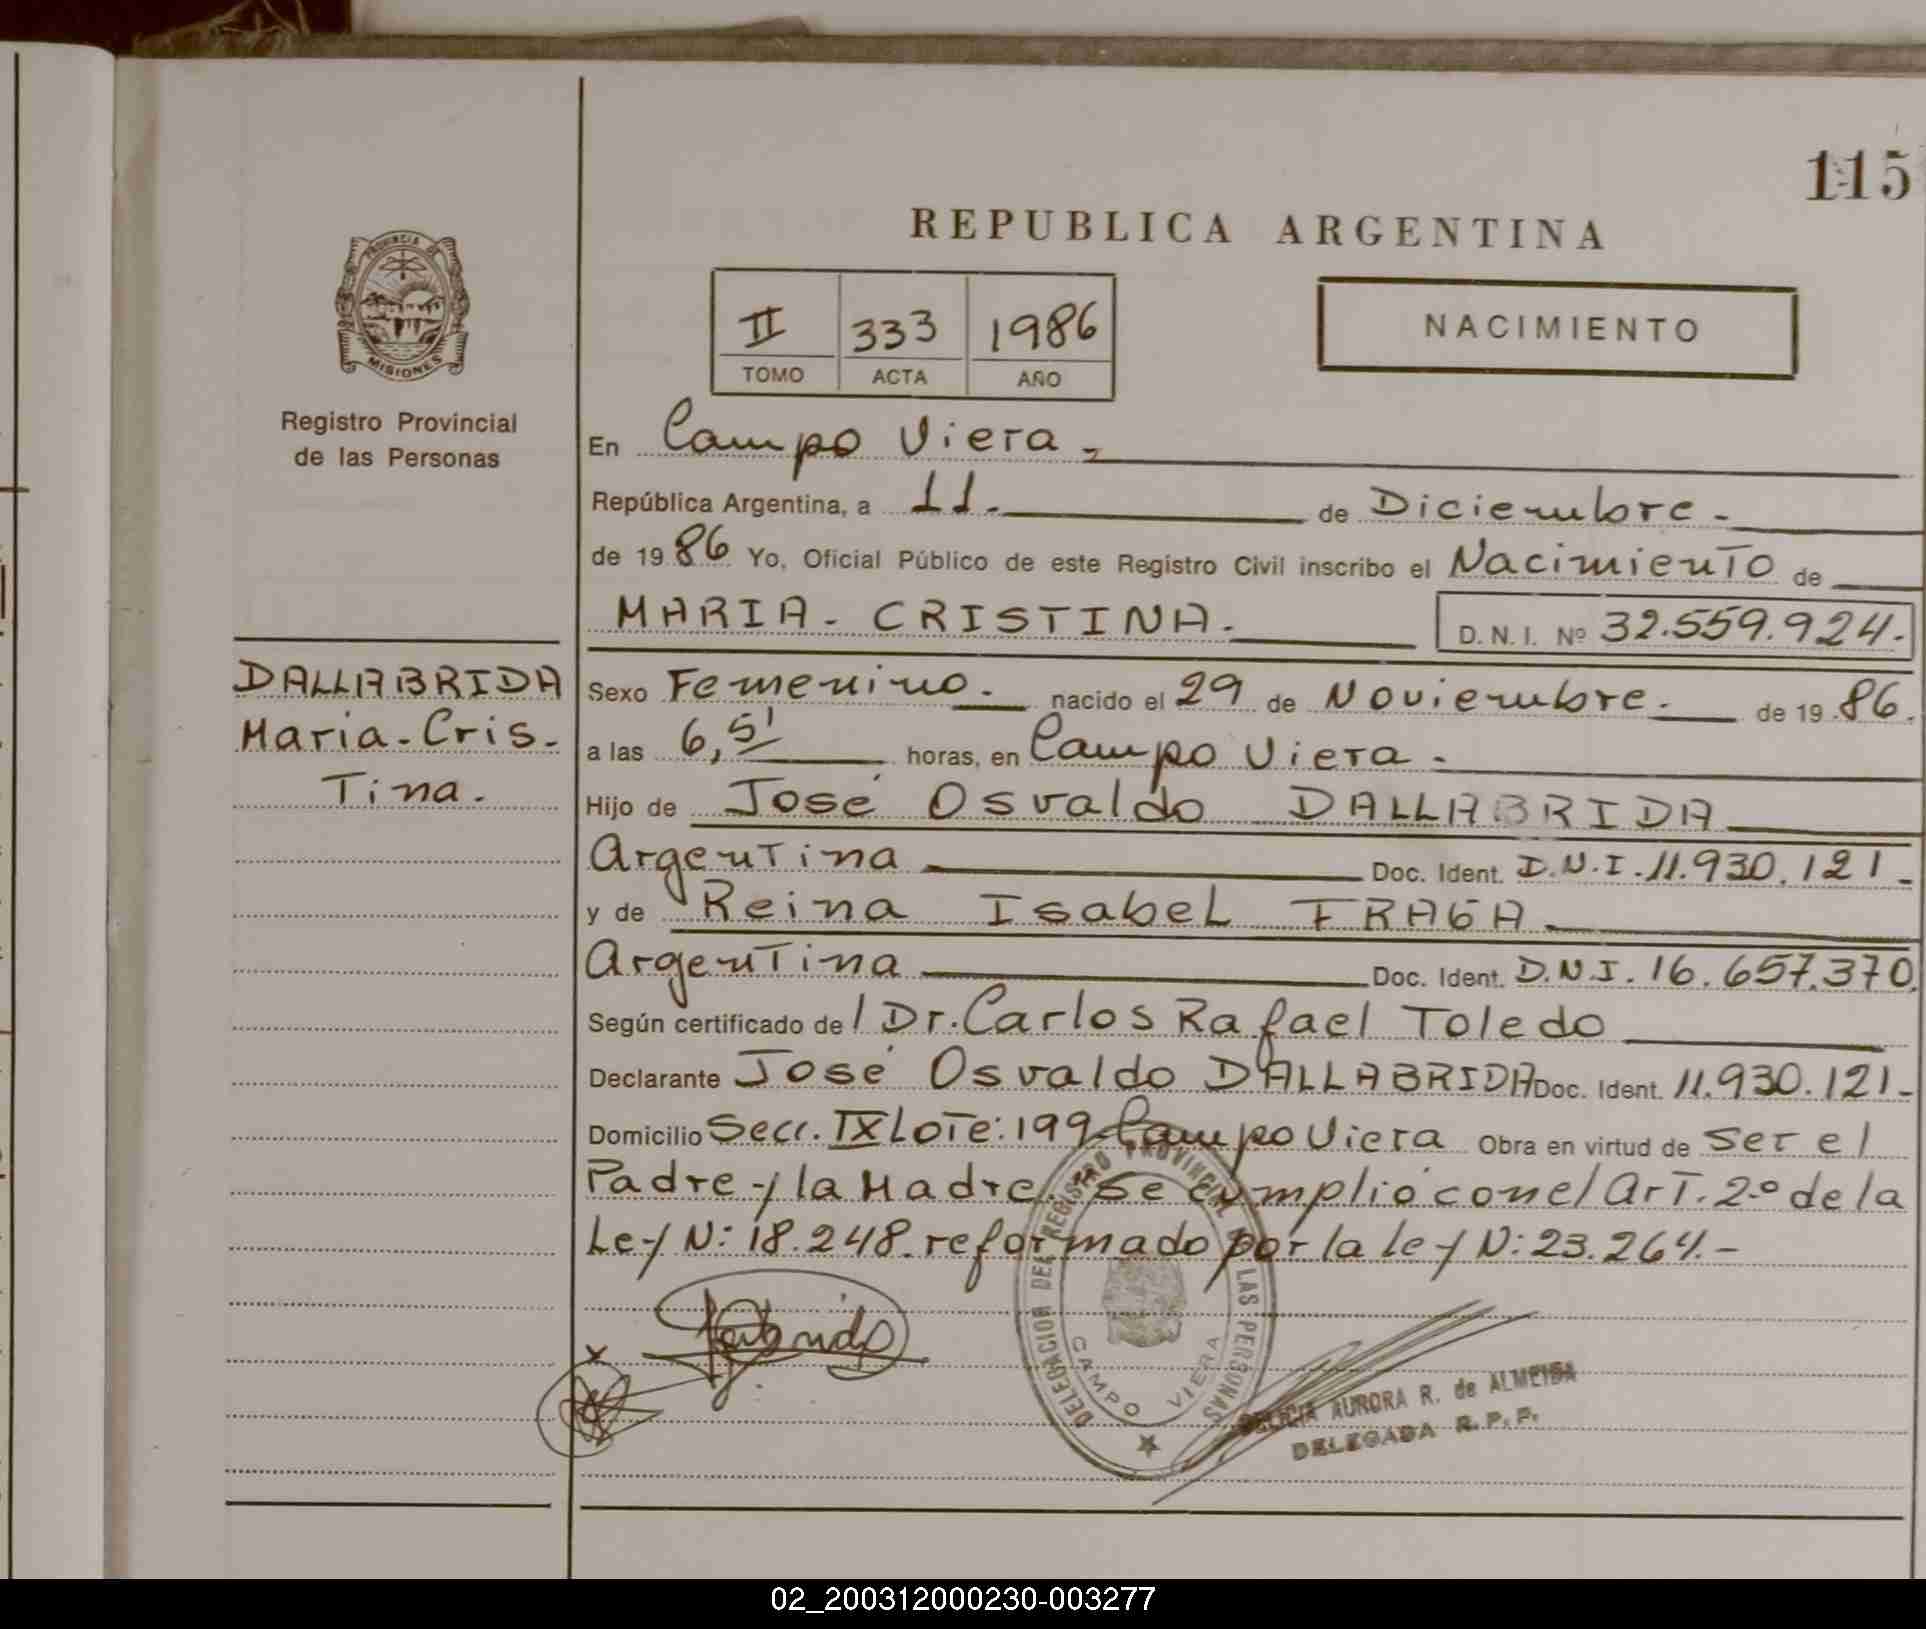 115
REPUBLICA ARGENTINA
PROVINCIA DE
MISIONES
II 333 1986
TOMO ACTA AÑO
NACIMIENTO
Registro Provincial
de las Personas
En Campo Viera
República Argentina, a 11.- de Diciembre.-
de 1986 Yo, Oficial Público de este Registro Civil inscribo el Nacimiento de
MARIA - CRISTINA.- D. N. I. Nº 32.559.924.
DALLABRIDA
Maria-Cris-
Tina.
Sexo Femenino. nacido el 29 de Noviembre. de 1986.
a las 6,5' horas, en Campo Viera.-
Hijo de José Osvaldo DALLABRIDA
Argentina Doc. Ident. D.N.I. 11.930.121-
y de Reina Isabel FRAGA
Argentina Doc. Ident. D.N.I. 16.657.370.
Según certificado de / Dr. Carlos Rafael Toledo
Declarante José Osvaldo DALLABRIDA Doc. Ident. 11.930.121-
Domicilio Secc. IX Lote: 199-Campo Viera Obra en virtud de ser el
Padre y la Madre. Se cumplió con el Art. 2º de la
Ley N: 18.248. reformado por la ley N: 23.264.-
DELEGACION DEL REGISTRO PROVINCIAL DE LAS PERSONAS
CAMPO VIERA
x
AURORA R. de ALMEIDA
DELEGADA R. P. P.
02_200312000230-003277